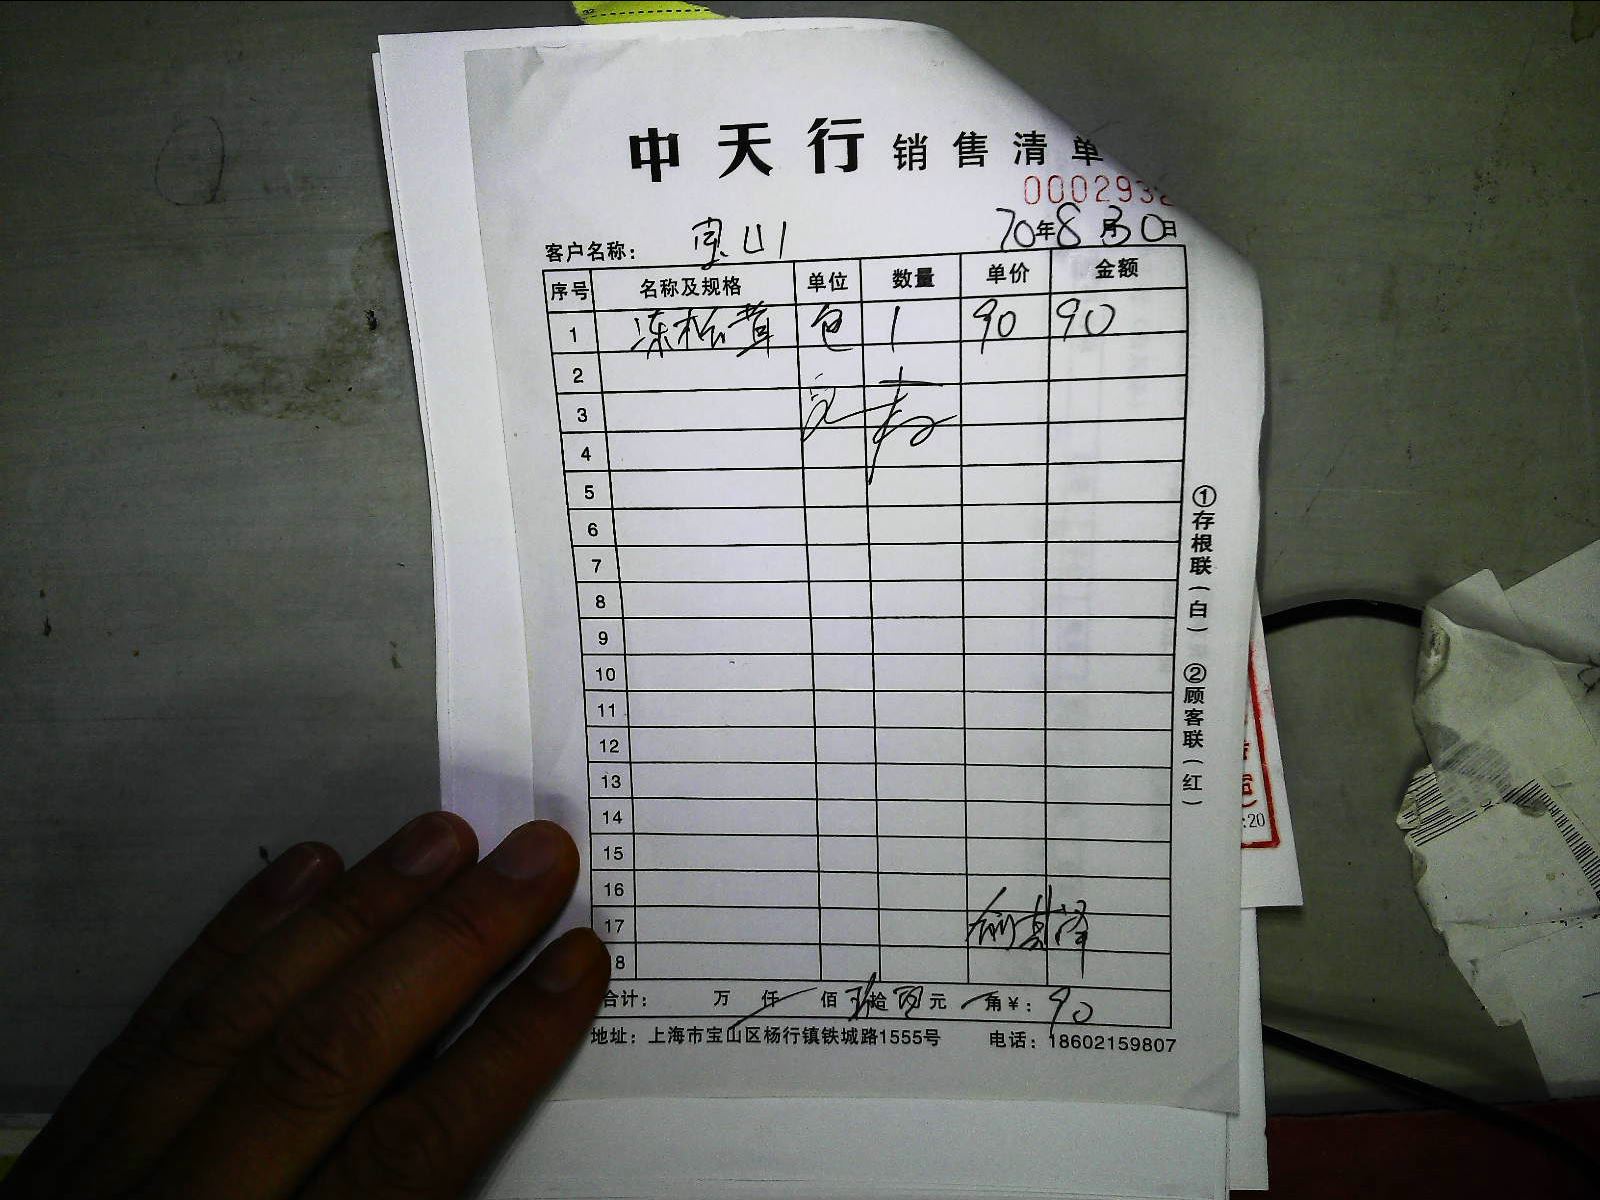 中天行 销售清单
000293
客户名称： 宝山 70年8月30日
序号 名称及规格 单位 数量 单价 金额
1 冻松茸 包 1 90 90
2
3
4
5
6
7
8
9
10
11
12
13
14
15
16
17
8
合计： 万 仟 佰 玖拾 元 角 ¥：90
地址：上海市宝山区杨行镇铁城路1555号 电话：18602159807
①存根联（白） ②顾客联（红）
:20